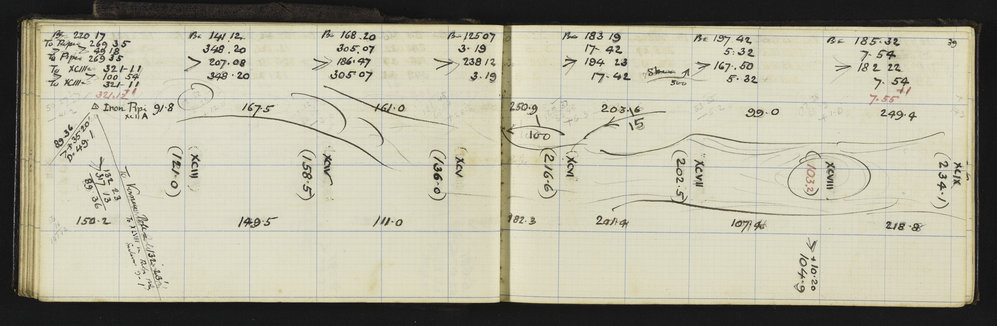 Be 220 17
To Pipe 269 35
> 49 18
To Pipe 269 35
To XCIII 321-11
> 100 54
To XCIII 321-11
Δ Iron Pipe
XCII A
91.8
89 36
> +35.20
D. 49.1
132 23
> 317 13
89 36
150.2
Be 141 12
348.20
> 207.08
348.20
167.5
XCIII
(121.0)
149.5
Be 168.20
305.07
> 186.47
305.07
161.0
XCIV
(158.5)
111.0
Be 125 07
3.19
> 238 12
3.19
XCV
(136.0)
250.9
100
182.3
Be 183 19
17.42
> 194 23
17.42
203.6
15
XCVI
(216.6)
241.4
Be 197 42
5.32
> 167.50
5.32
99.0
XCVII
(202.5)
107.4
XCVIII
(103.2)
> +10.20
104.9
39
Be 185.32
7.54
> 182 22
7.54
+1
7.55
249.4
XCIX
(234.1)
218.8